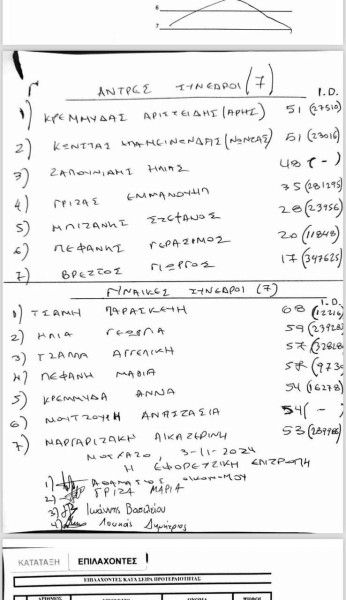 6
7
Γ ΑΝΤΡΕΣ ΣΥΝΕΔΡΟΙ (7) I.D.
1) ΚΡΕΜΜΥΔΑΣ ΑΡΙΣΤΕΙΔΗΣ (ΑΡΗΣ) 51 (27510)
2) ΚΟΝΤΤΑΣ ΕΠΑΜΕΙΝΩΝΔΑΣ (ΝΩΝΤΑΣ) 51 (23016)
3) ΖΑΠΟΥΝΙΔΗΣ ΗΛΙΑΣ 48 (-)
4) ΓΡΙΖΑΣ ΕΜΜΑΝΟΥΗΛ 35 (281295)
5) ΜΠΙΖΑΝΗΣ ΣΤΕΦΑΝΟΣ 28 (23956)
6) ΠΕΦΑΝΗΣ ΓΕΡΑΣΙΜΟΣ 20 (11848)
7) ΒΡΕΤΤΟΣ ΓΙΩΡΓΟΣ 17 (347625)
ΓΥΝΑΙΚΕΣ ΣΥΝΕΔΡΟΙ (7) I.D.
1) ΤΣΑΜΗ ΠΑΡΑΣΚΕΥΗ 68 (12216)
2) ΗΛΙΑ ΓΕΩΡΓΙΑ 59 (23928)
3) ΤΖΑΛΛΑ ΑΓΓΕΛΙΚΗ
4) ΠΕΦΑΝΗ ΜΑΒΙΑ
5) ΚΡΕΜΜΥΔΑ ΑΝΝΑ 54 (16278)
6) ΜΟΥΤΖΟΥΡΗ ΑΝΑΣΤΑΣΙΑ 54 (-)
7) ΜΑΡΓΑΡΙΤΑΚΗ ΑΙΚΑΤΕΡΙΝΗ 53 (289986)
ΜΟΣΧΑΤΟ, 3-11-2024
Η ΕΦΟΡΕΥΤΙΚΗ ΕΠΙΤΡΟΠΗ
1)
2) ΓΡΙΖΑ ΜΑΡΙΑ
3) Ιωάννης Βασιλείου
4) Λουκάς Δημήτριος
ΚΑΤΑΤΑΞΗ ΕΠΙΛΑΧΟΝΤΕΣ
ΕΠΙΛΑΧΟΝΤΕΣ ΚΑΤΑ ΣΕΙΡΑ ΠΡΟΤΕΡΑΙΟΤΗΤΑΣ